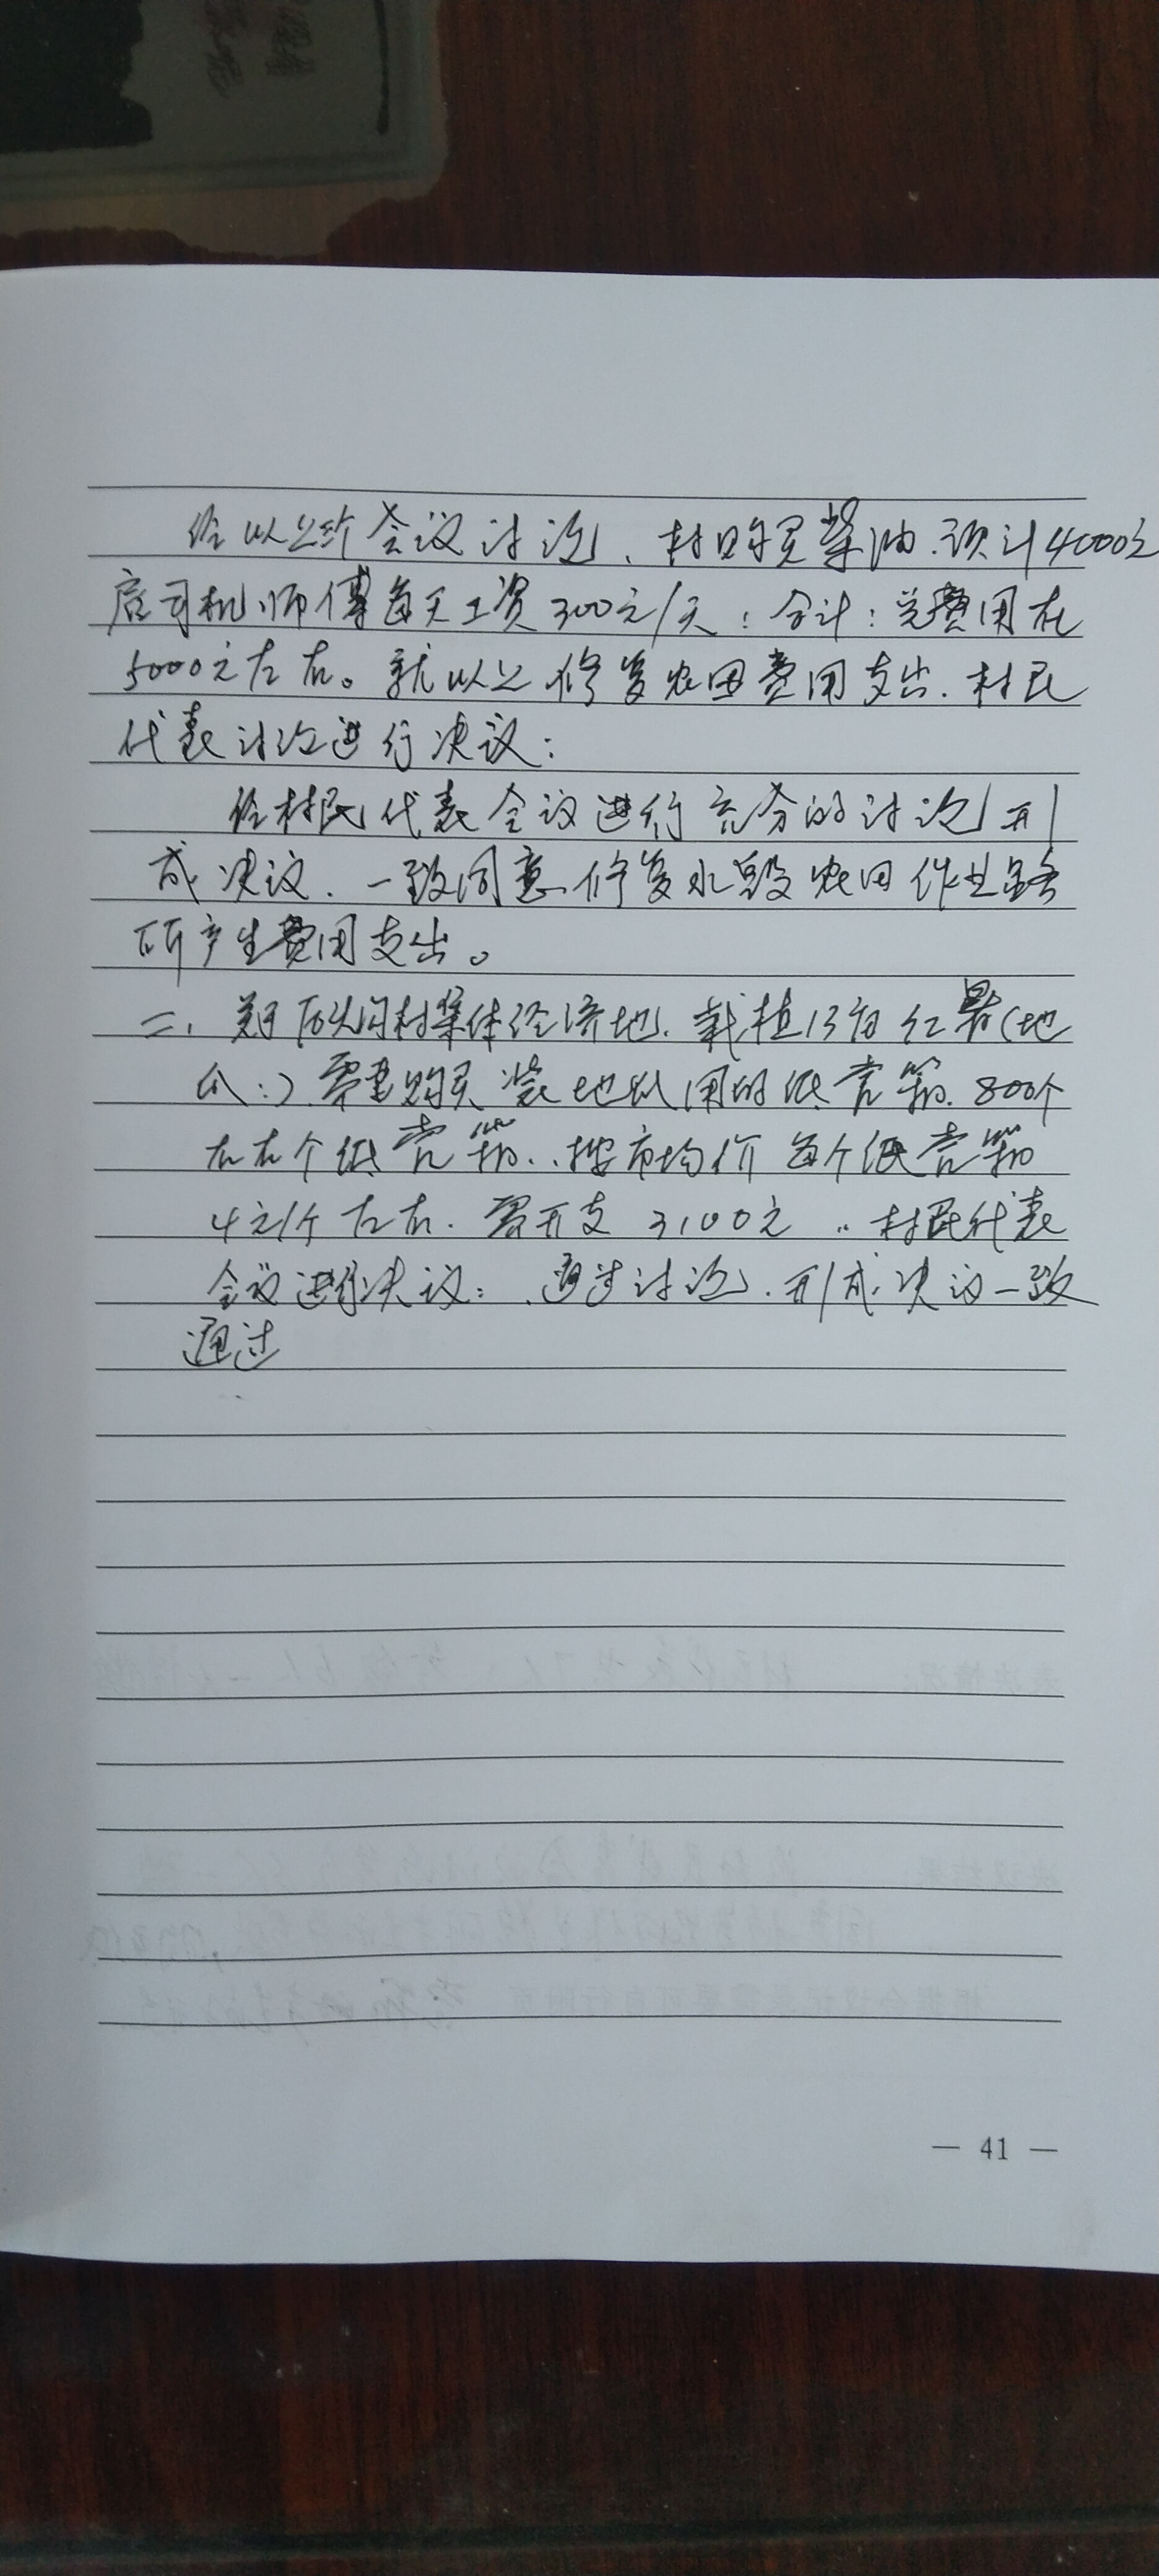 经以上 会议讨论、村购买柴油.预计4000元
司机师傅每天工资300元/天：合计：总费用在
5000元左右。就以上修复农田费用支出.村民
代表讨论进行决议：
经村民代表会议进行充分的讨论形
成决议.一致同意修复水毁农田作业路
所产生费用支出。
二、 村集体经济地.栽植13 红薯(地
瓜:)需要购买装地瓜用的纸壳箱.800个
左右个纸壳箱..按市均价每个纸壳箱
4元/个左右.需开支3100元..村民代表
会议进行决议：.通过讨论.形成决议一致
通过
— 41 —